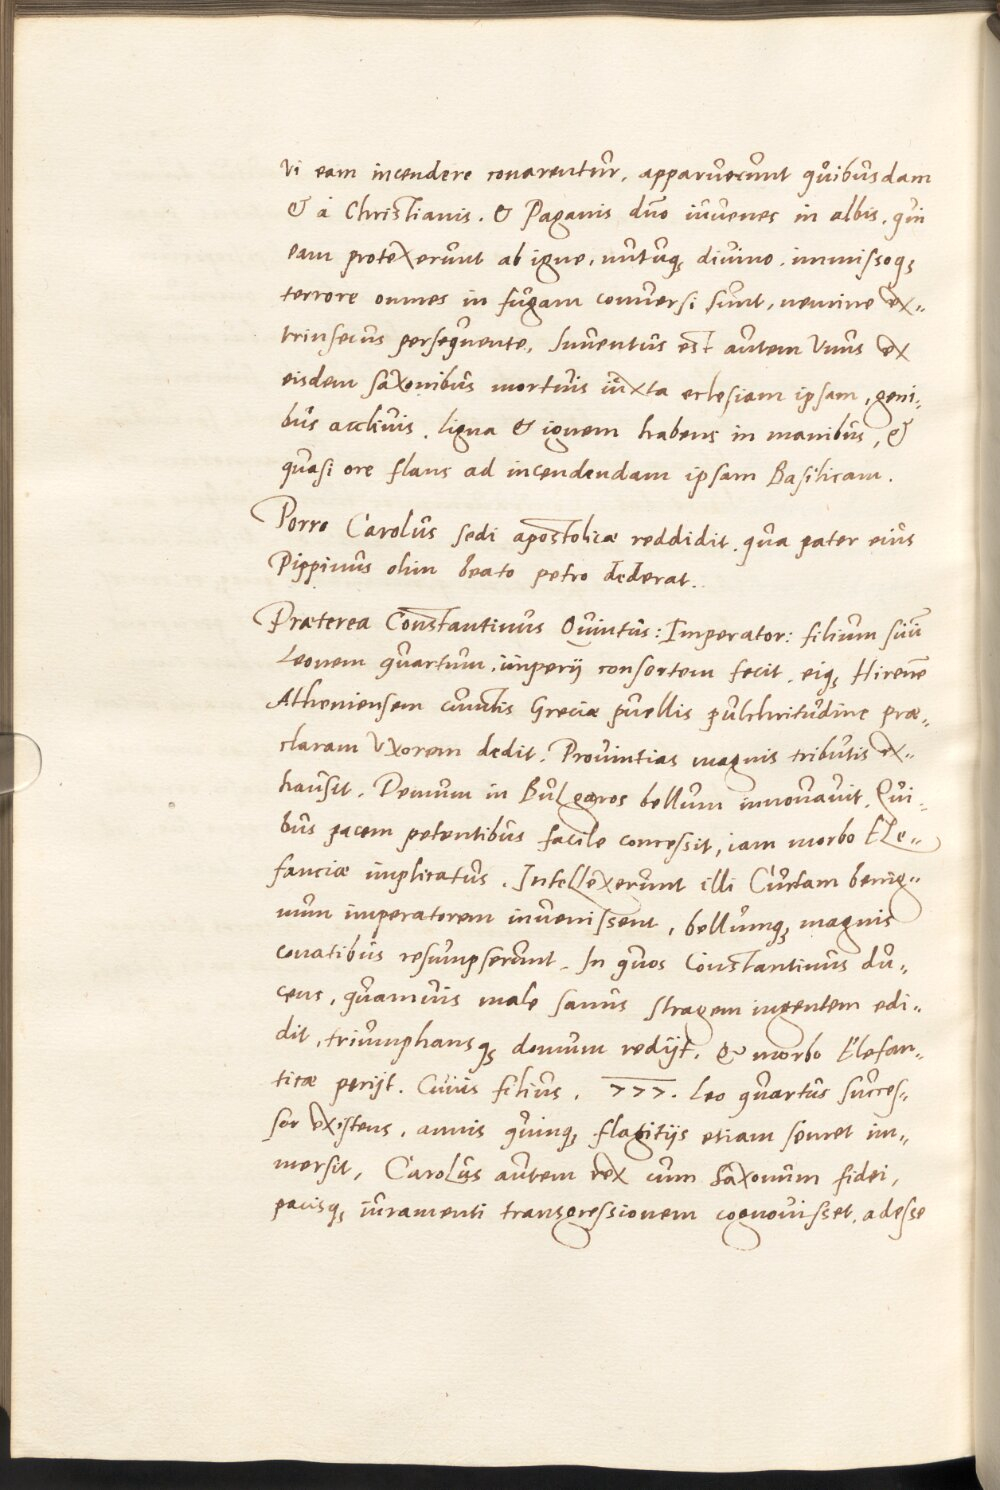 Vi eam incendere conarentur, apparuerunt quibusdam
& á Christianis. & Paganis duo iuuenes in albis. qui
eam protexerunt ab igne, nutuq; diuino. immissoq;
terrore omnes in fugam conuersi sunt, nemine ex-
trinsecus persequente. Inuentus est autem Vnus ex
eisdem saxonibus mortuis iuxta eclesiam ipsam, geni-
bus accliuis. ligna & ignem habens in manibus, &
quasi ore flans ad incendendam ipsam Basilicam.
Porro Carolus sedi apostolicæ reddidit. qua pater eius
Pippinus olim beato petro dederat.
Præterea Constantinus Quintus: Imperator: filium suū
Leonem quartum. imperij consortem fecit. eiq; Hirenē
Atheniensem cunctis Greciæ puellis pulchritudine præ-
claram Vxorem dedit. Prouintias magnis tributis ex-
hausit. Demum in Bulgaros bellum innouauit. Qui-
bus pacem petentibus facile concessit, iam morbo Ele-
fanciæ implicatus. Intellexerunt illi Curtam benig-
num imperatorem inuenissent, bellumq; magnis
conatibus resumpserunt. In quos Constantinus du-
cens, quamuis male sanus stragem ingentem edi-
dit, triumphansq; domum redijt. & morbo Elefan-
ticæ perijt. Cuius filius. 777. Leo quartus succes-
sor existens. annis quinq; flagitijs etiam semet im-
mersit. Carolus autem rex cum Saxonum fidei,
pacisq; iuramenti transgressionem cognouisset. adesse